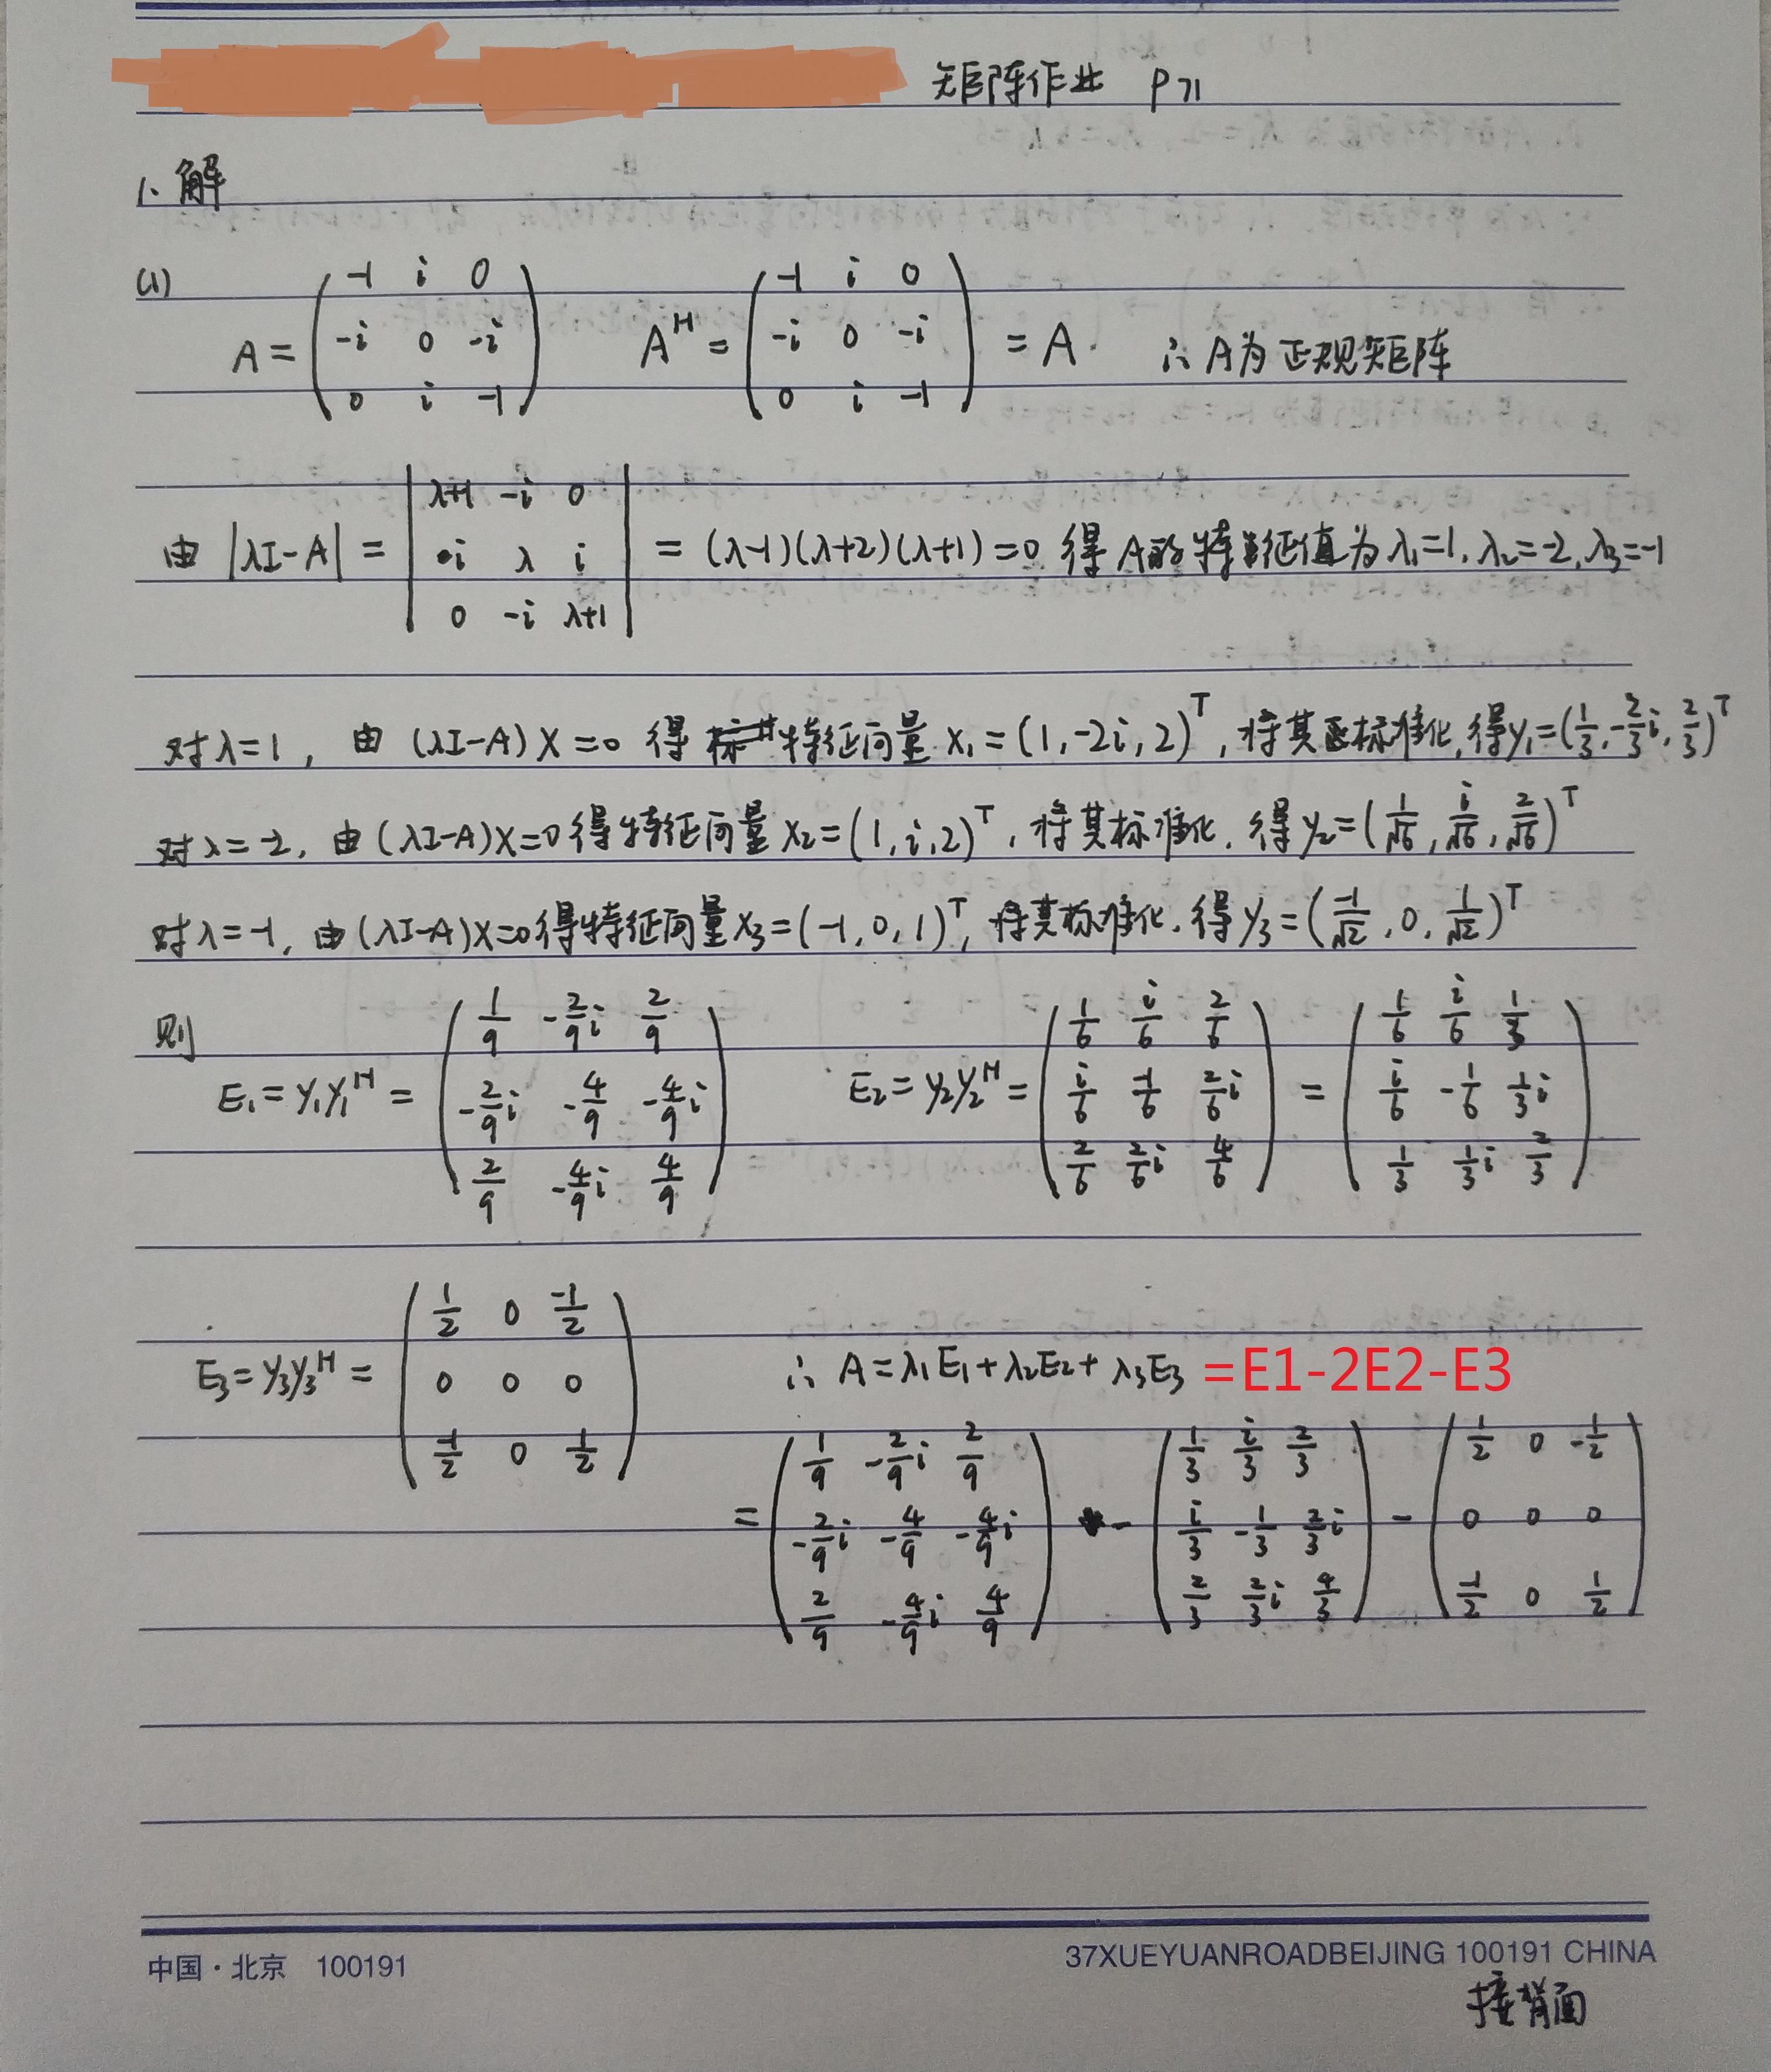 矩阵作业 P71
1、解
(1) A = ( -1 i 0 ; -i 0 -i ; 0 i -1 ) A^H = ( -1 i 0 ; -i 0 -i ; 0 i -1 ) = A. ∴ A为正规矩阵
由 |λI-A| = | λ+1 -i 0 ; i λ i ; 0 -i λ+1 | = (λ-1)(λ+2)(λ+1)=0 得 A的特征值为 λ₁=1, λ₂=-2, λ₃=-1
对λ=1, 由 (λI-A)X=0 得 特征向量 X₁=(1,-2i,2)^T, 将其标准化, 得y₁=(1/3,-2/3 i,2/3)^T
对λ=-2, 由(λI-A)X=0得特征向量X₂=(1,i,2)^T, 将其标准化, 得y₂=(1/√6, i/√6, 2/√6)^T
对λ=-1, 由(λI-A)X=0得特征向量X₃=(-1,0,1)^T, 将其标准化, 得y₃=(-1/√2, 0, 1/√2)^T
则
E₁=y₁y₁^H = ( 1/9 -2/9 i 2/9 ; -2/9 i -4/9 -4/9 i ; 2/9 -4/9 i 4/9 ) E₂=y₂y₂^H = ( 1/6 i/6 2/6 ; i/6 -1/6 2/6 i ; 2/6 2/6 i 4/6 ) = ( 1/6 i/6 1/3 ; i/6 -1/6 1/3 i ; 1/3 1/3 i 2/3 )
E₃=y₃y₃^H = ( 1/2 0 -1/2 ; 0 0 0 ; -1/2 0 1/2 ) ∴ A=λ₁E₁+λ₂E₂+λ₃E₃ =E1-2E2-E3
= ( 1/9 -2/9 i 2/9 ; -2/9 i -4/9 -4/9 i ; 2/9 -4/9 i 4/9 ) - ( 1/3 i/3 2/3 ; i/3 -1/3 2/3 i ; 2/3 2/3 i 4/3 ) - ( 1/2 0 -1/2 ; 0 0 0 ; -1/2 0 1/2 )
中国·北京 100191
37XUEYUANROADBEIJING 100191 CHINA
接背面